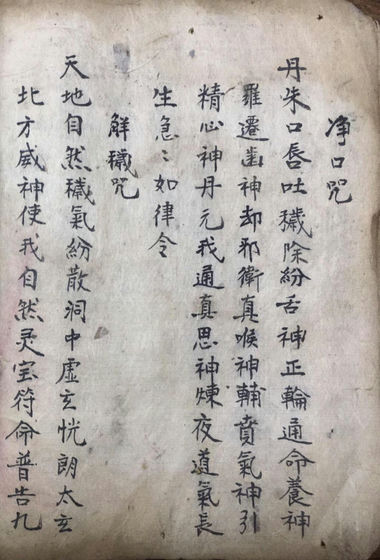 净口咒
丹朱口唇吐穢除紛舌神正輪通命養神
羅遷齒神却邪衛真喉神輔賁氣神引
精心神丹元我通真思神煉夜道氣長
生急〻如律令
觧穢咒
天地自然穢氣紛散洞中虚玄恍朗太玄
北方威神使我自然灵宝符命普告九